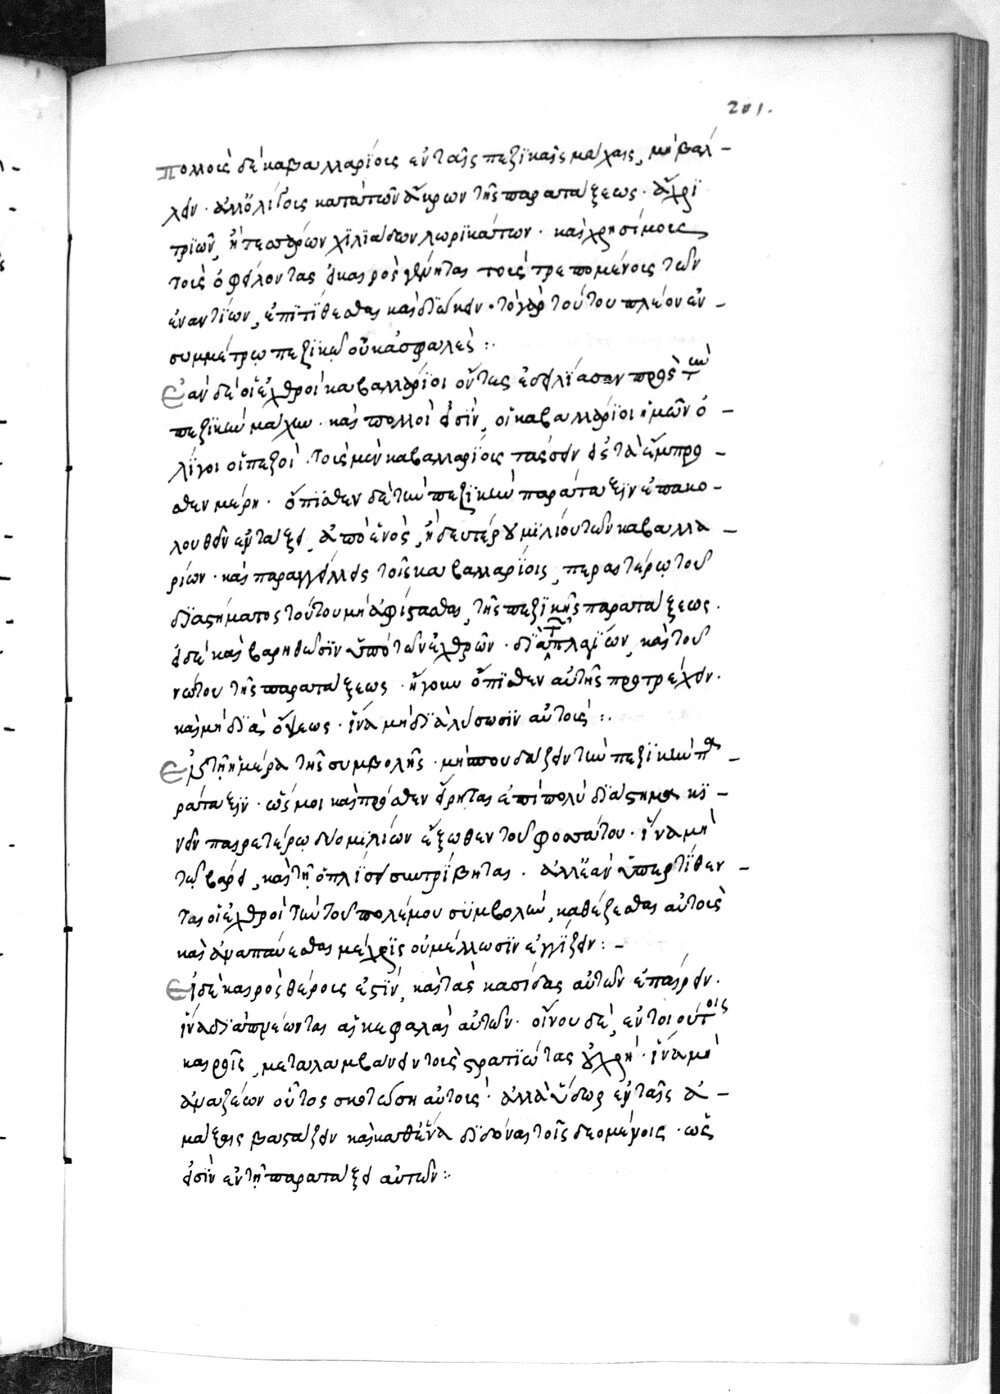 201.
πολλοὺς δὲ καβαλλαρίους ἐν ταῖς πεζικαῖς μάχαις, μὴ βάλ-
λειν· ἀλλ' ὀλίγοις κατὰ τῶν ἄκρων τῆς παρατάξεως· ἄχρι
τριῶν, ἢ τεσσάρων χιλιάδων λωρικάτων· καὶ χρησίμοις
τοὺς ὀφείλοντας εἰ καιρὸς γένηται τοῖς τρεπομένοις τῶν
ἐναντίων, ἐπιτίθεσθαι καὶ διώκειν· τὸ γὰρ τούτου πλέον ἐν
συμμέτρῳ πεζικῷ οὐκ ἀσφαλές :·
Ἐὰν δὲ οἱ ἐχθροὶ καβαλλάριοι ὄντες ἐσχλίασαν πρὸς τὴν
πεζικὴν μάχην· καὶ πολλοὶ εἰσὶν, οἱ καβαλλάριοι ἡμῶν ὀ-
λίγοι οἱ πεζοὶ· τοὺς μὲν καβαλλαρίους τάσσειν εἰς τὰ ἔμπρο-
σθεν μέρη· ὄπισθεν δὲ τὴν πεζικὴν παράταξιν ἐπακο-
λουθεῖν ἐν τάξει, ἀπὸ ἑνὸς, ἢ δευτέρου μιλίου τῶν καβαλλα-
ρίων· καὶ παραγγεῖλαι τοῖς καβαλλαρίοις, περαιτέρω τοῦ
διαστήματος τούτου μὴ ἀφίστασθαι, τῆς πεζικῆς παρατάξεως·
εἰ δὲ καὶ βαρηθῶσιν ὑπὸ τῶν ἐχθρῶν· διὰ τῶν πλαγίων, καὶ τοῦ
νώτου τῆς παρατάξεως· ἤγουν ὄπισθεν αὐτῆς προτρέχειν·
καὶ μὴ διὰ ὄψεως· ἵνα μὴ διαλύσωσιν αὐτούς :·
Εἰς τὴν ἡμέρα τῆς συμβολῆς· μὴ σπουδάζειν τὴν πεζικὴν πα-
ράταξιν· ὥς μοι καὶ πρόσθεν εἴρηται ἐπὶ πολὺ διάστημα κι-
νεῖν παρετέρω δύο μιλίων ἔξωθεν τοῦ φοσσάτου· ἵνα μὴ
τῷ βάρει, καὶ τῇ ὁπλίσει συντρίβηται· ἀλλ' ἐὰν ὑπερτίθεν-
ται οἱ ἐχθροὶ τὴν τοῦ πολέμου συμβολὴν, καθέζεσθαι αὐτοὺς
καὶ ἀναπαύεσθαι μέχρις οὗ μέλλωσιν ἐγγίζειν :-
Εἰ δὲ καιρὸς θέρους ἐστὶν, καὶ τὰς κασίδας αὐτῶν ἐπαίρειν·
ἵνα διαπνέωνται αἱ κεφαλαὶ αὐτῶν· οἴνου δὲ, ἐν τοιούτοις
καιροῖς, μεταλαμβάνειν τοὺς στρατιώτας οὐ χρή· ἵνα μὴ
ἀναζέων οὗτος σκοτώσῃ αὐτούς· ἀλλὰ ὕδωρ ἐν ταῖς ἁ-
μάξαις βαστάζειν καὶ καθένα διδόναι τοῖς δεομένοις· ὡς
εἰσὶν ἐν τῇ παρατάξει αὐτῶν :·